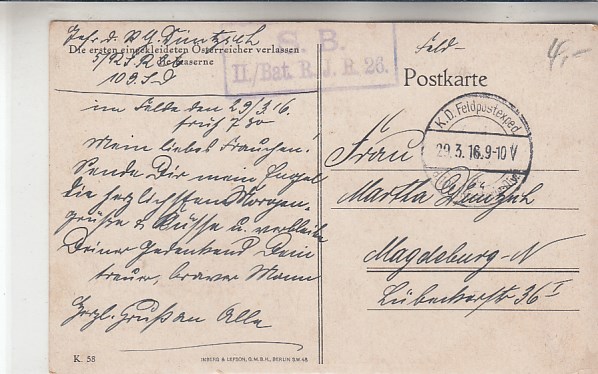 Gefr. d. R. A.
Die ersten eingekleideten Österreicher verlassen
Kaserne
S. B.
II./Bat. R. J. R. 26.
Feld-
Postkarte
4,-
K.D. Feldpostexped.
29.3.16. 9-10 V
im Felde den 29/3.16.
früh 7 30
Mein liebes Frauchen!
Sende Dir mein Engel
die herzlichsten Morgen-
grüße & Küsse u. verbleibe
Deiner Gedenkend Dein
treuer, braver Mann
Herzl. Gruß an Alle
Frau
Martha
Magdeburg-N
Lübeckerstr 36 I
K. 58
INBERG & LEFSON, G.M.B.H., BERLIN SW. 48